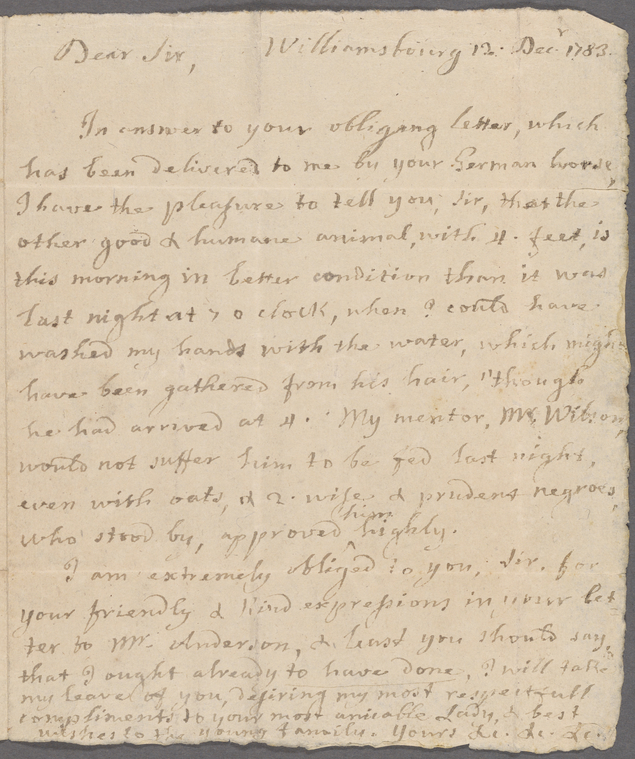 Dear Sir, Williamsbourg 12. Decr 1783.
In answer to your obliging letter, which
has been delivered to me by your German horse,
I have the pleasure to tell you, Sir, that the
other good & humane animal, with 4. feet, is
this morning in better condition than it was
last night at 7 o clock, when I could have
washed my hands with the water, which might
have been gathered from his hair, though
he had arrived at 4. My mentor, Mr. Wilson,
would not suffer him to be fed last night,
even with oats, & 2. wise & prudent negroes,
who stood by, approved him highly.
I am extremely obliged to you, Sir, for
your friendly & kind expressions in your let-
ter to Mr. Anderson, & least you should say,
that I ought already to have done, I will take
my leave of you, desiring my most respectfull
compliments to your most amicable Lady, & best
wishes to the young family. Yours &c. &c. &c.